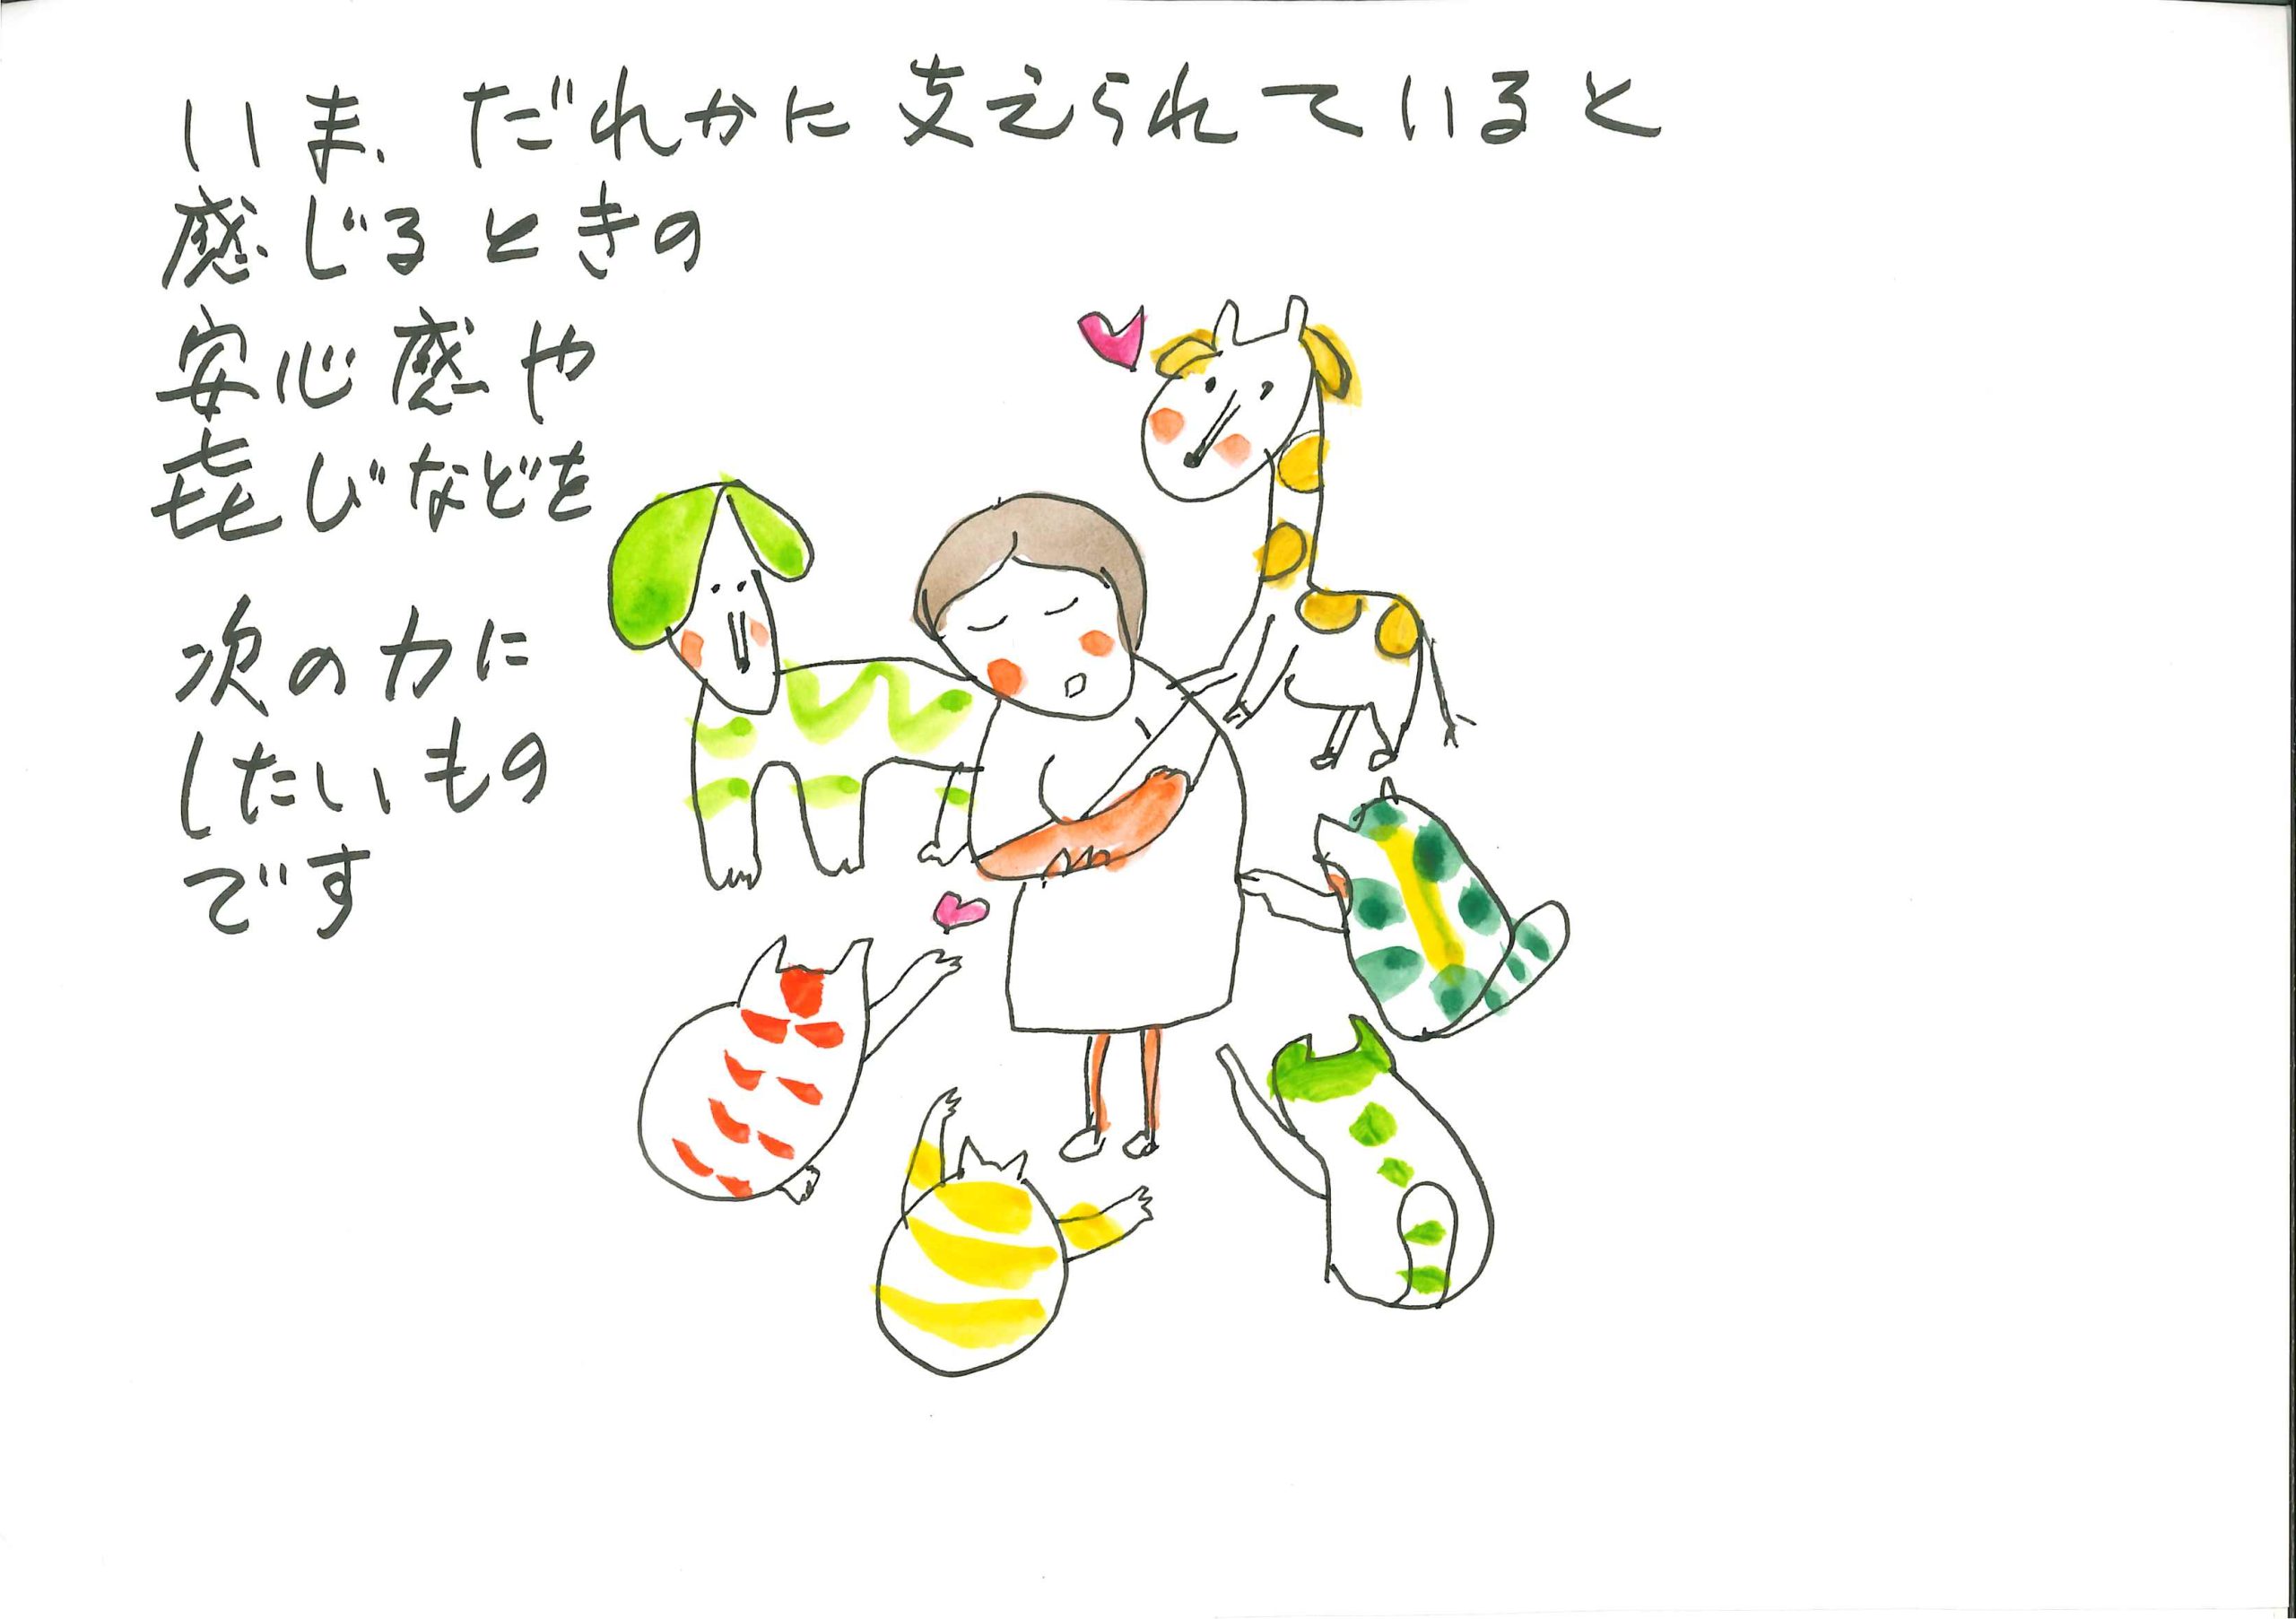 いま、だれかに支えられていると
感じるときの
安心感や
㐂びなどを
次の力に
したいもの
です